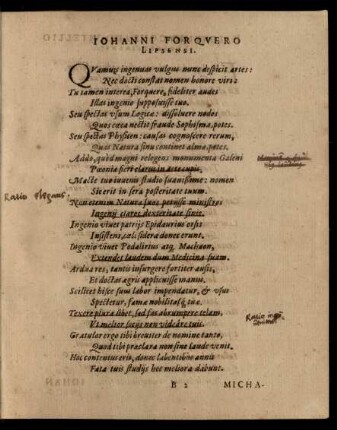 IOHANNI FORQVERO
LIPSENSI.
QVamuis ingenuas vulgus nunc despicit artes:
Nec docti constat nomen honore viri:
Tu tamen interea, Forquere, fideliter audes
Illas ingenio supposuisse tuo.
Seu spectas vsum Logicæ: dissoluere nodos
Quos cæca nectit fraude Sophisma, potes.
Seu spectas Physicen: causas cognoscere rerum,
Quas Natura sinu continet alma, potes.
Adde, quòd magni relegens monumenta Galeni
Pæonia fieri clarus in arte cupis.
Macte tuo iuuenis studio sanctissime: nomen
Sic erit in sera posteritate tuum.
Non etenim Natura sinet periisse ministros
Ingenij claros dexteritate sui.
Ratio elegans.
Ingenio viuet patrijs Epidaurius orsis
Insistens, cœli sidera donec erunt.
Ingenio viuet Podalirius atq; Machaon,
Extendet laudem dum Medicina suam.
Ardua res; tantis insurgere fortiter ausis,
Et doctas agris applicuisse manus.
Scilicet hisce suum labor impendatur, & vsus
Spectetur, fama nobilitasq; tua.
Texere plura libet, sed fas abrumpere telam,
Et molles
Gratuler ergo tibi breuiter de nomine tanto,
Quod tibi præclara non sine laude venit.
Hoc contruturerio, donec labentibus annis
Fata tuis studijs hoc meliora dabunt.
B 2 MICHA-